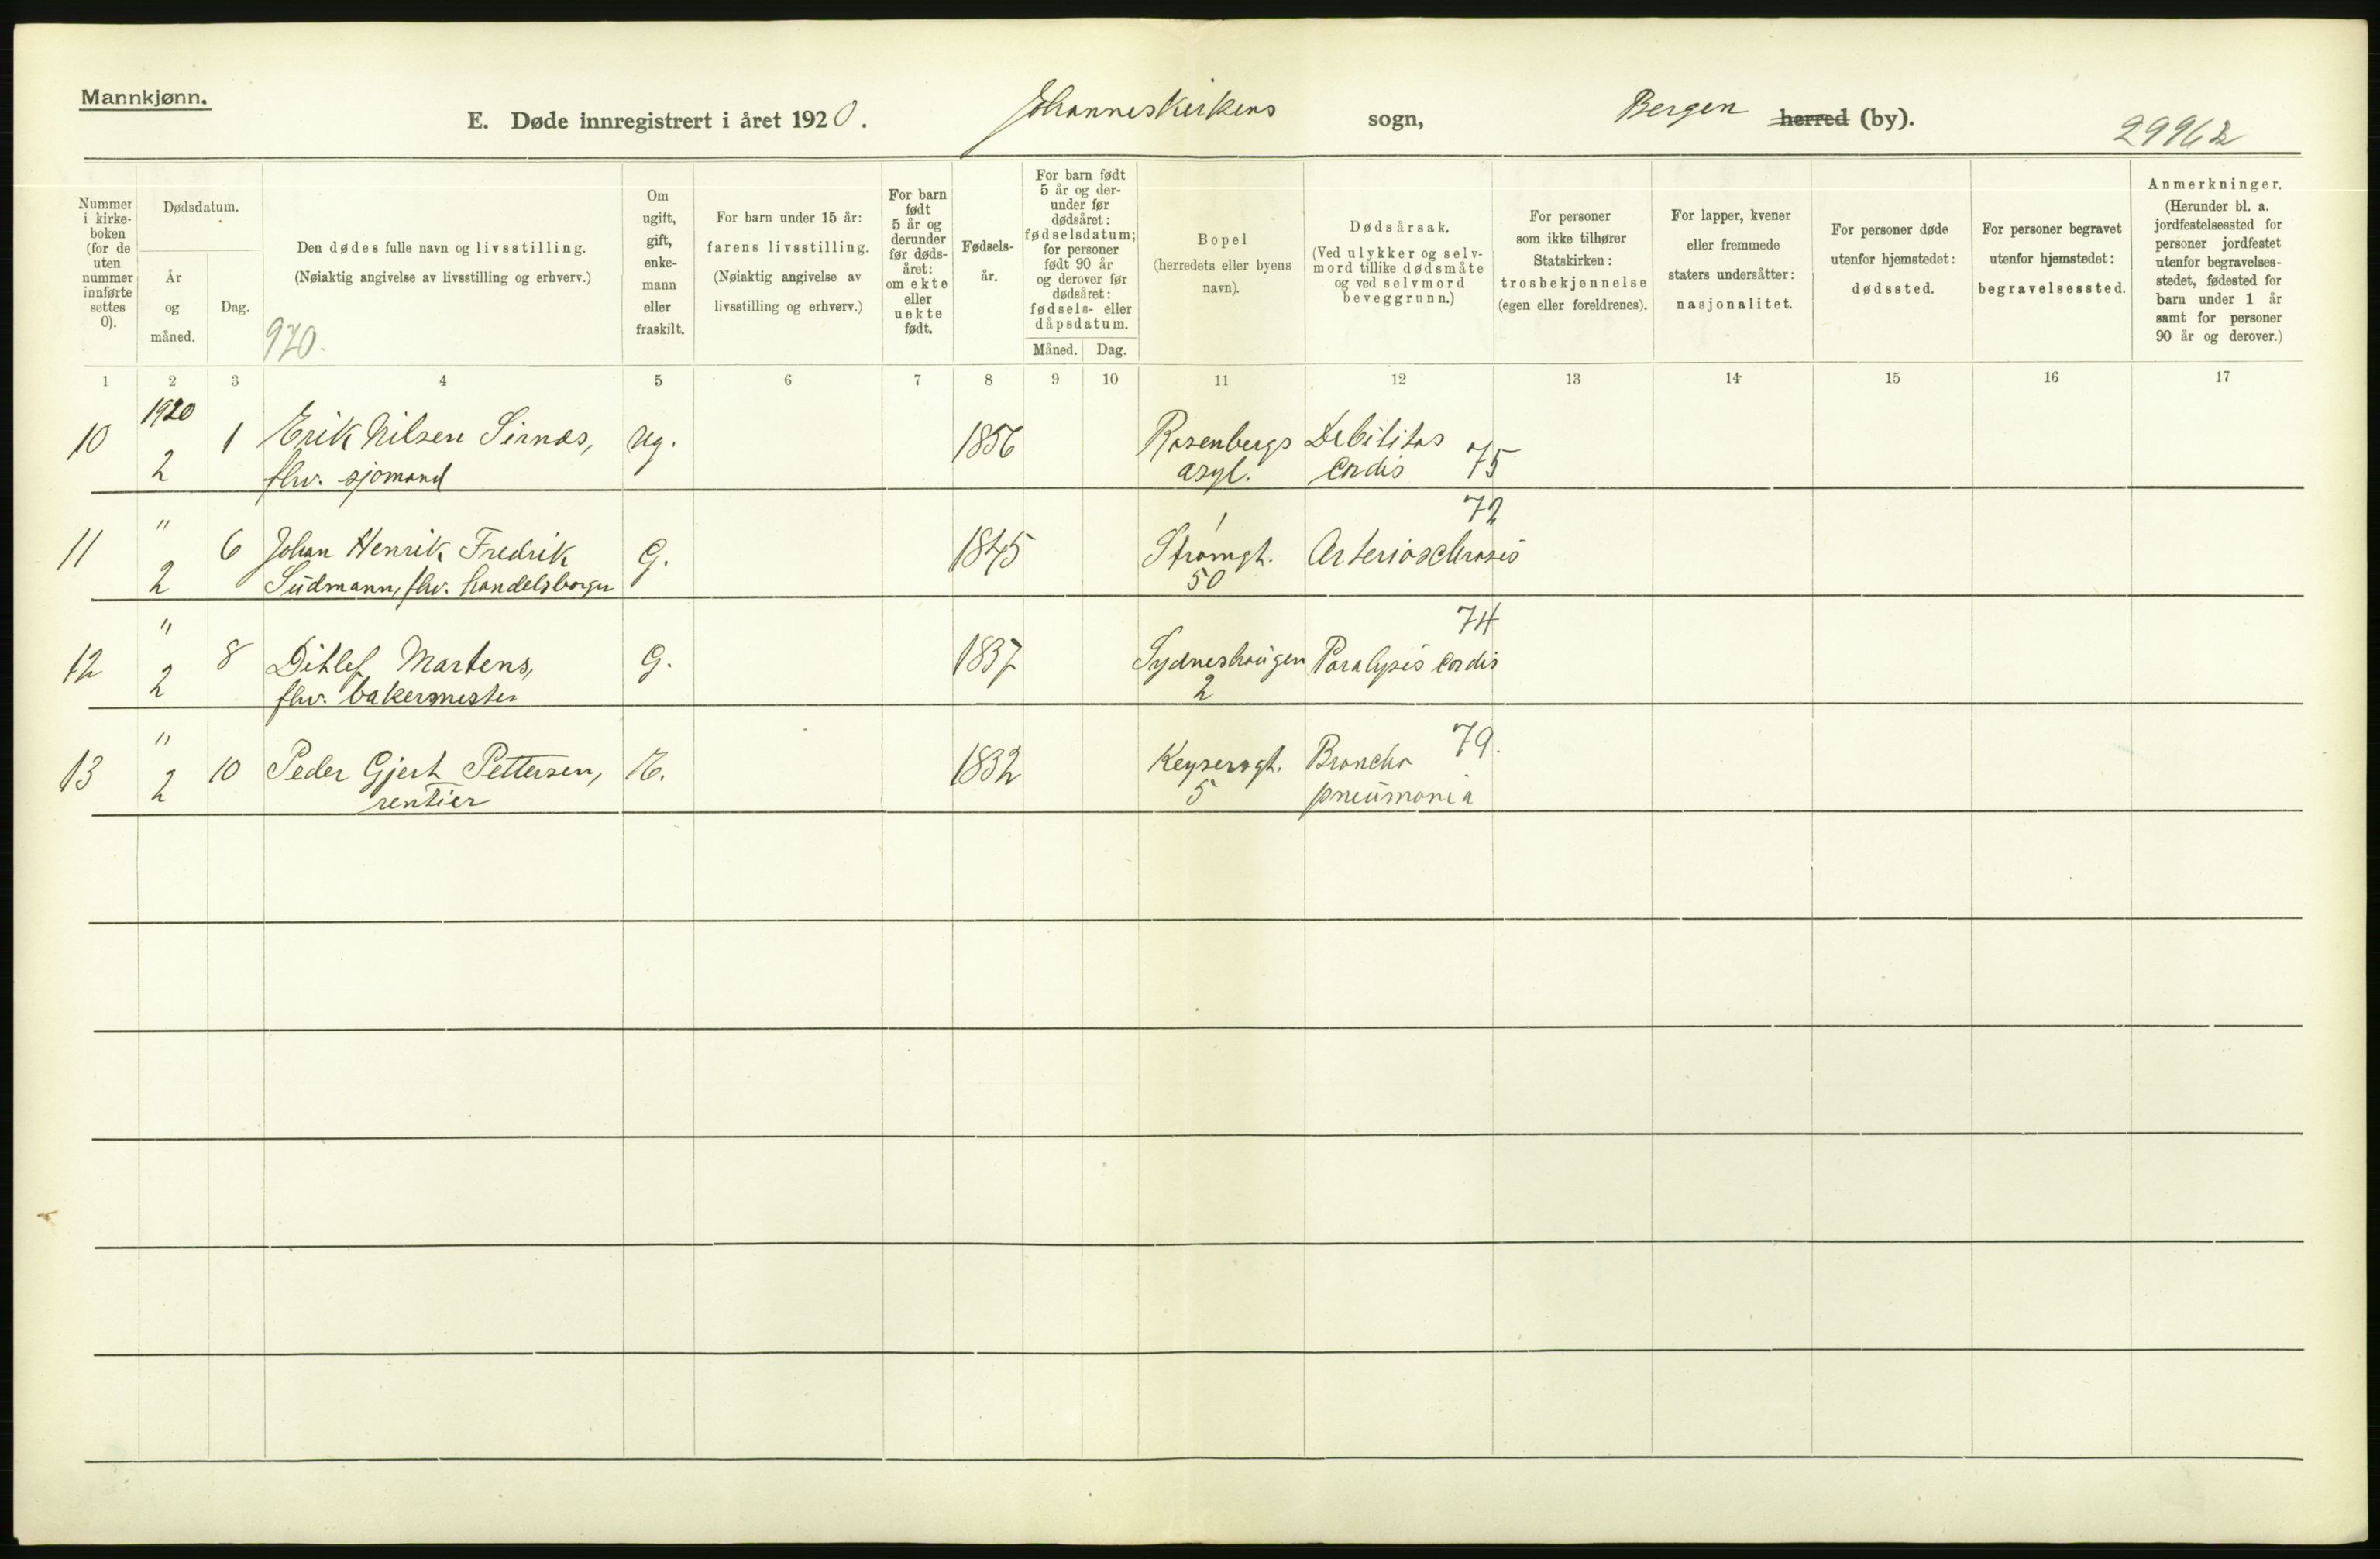 Mannkjønn.
E. Døde innregistrert i året 1920. Johanneskirkens sogn, Bergen herred (by).
2996
Nummer i kirke-boken (for de uten nummer innførte settes 0).
Dødsdatum.
År og måned.
Dag.
Den dødes fulle navn og livsstilling.
(Nøiaktig angivelse av livsstilling og erhverv.)
970.
Om ugift, gift, enke-mann eller fraskilt.
For barn under 15 år:
farens livsstilling.
(Nøiaktig angivelse av
livsstilling og erhverv.)
For barn født 5 år og derunder før døds-året: om ekte eller uekte født.
Fødsels-år.
For barn født 5 år og der-under før dødsåret: fødselsdatum; for personer født 90 år og derover før dødsåret: fødsels- eller dåpsdatum.
Måned. Dag.
Bopel
(herredets eller byens
navn).
Dødsårsak.
(Ved ulykker og selv-
mord tillike dødsmåte
og ved selvmord
beveggrunn.)
For personer
som ikke tilhører
Statskirken:
trosbekjennelse
(egen eller foreldrenes).
For lapper, kvener
eller fremmede
staters undersåtter:
nasjonalitet.
For personer døde
utenfor hjemstedet:
dødssted.
For personer begravet
utenfor hjemstedet:
begravelsessted.
Anmerkninger.
(Herunder bl. a.
jordfestelsessted for
personer jordfestet
utenfor begravelses-
stedet, fødested for
barn under 1 år
samt for personer
90 år og derover.)
1 2 3 4 5 6 7 8 9 10 11 12 13 14 15 16 17
1920
10 2 1 Erik Nilsen Sirnæs, ug. 1856 Rosenbergs Debilitas
fhv. sjømand asyl. cordis 75
72
11 " 2 6 Johan Henrik Fredrik G. 1845 Strømgt. Arteriosclerosis
Südmann, fhv. handelsborger 50
74
12 " 2 8 Ditlef Martens, G. 1837 Sydneshaugen Paralysis cordis
fhv. bakermester 2
13 " 2 10 Peder Gjert Pettersen, E. 1832 Keysersgt. Broncho 79.
rentier 5 pneumonia